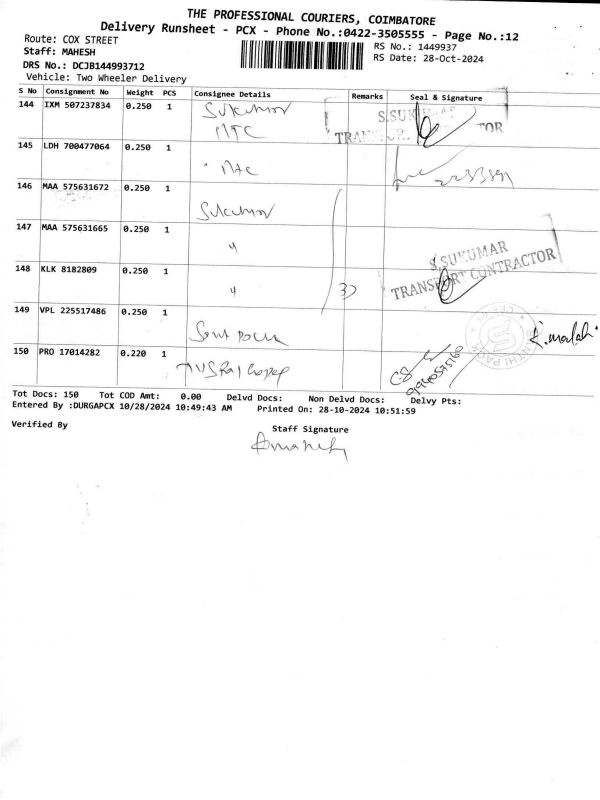 THE PROFESSIONAL COURIERS, COIMBATORE
Delivery Runsheet - PCX - Phone No.:0422-3505555 - Page No.:12
Route: COX STREET
RS No.: 1449937
Staff: MAHESH
RS Date: 28-Oct-2024
DRS No.: DCJB144993712
Vehicle: Two Wheeler Delivery
S No Consignment No Weight PCS Consignee Details Remarks Seal & Signature
144 IXM 507237834 0.250 1 Sukumar
MTC
S.SUKUMAR
TRANSPORT CONTRACTOR
145 LDH 700477064 0.250 1
146 MAA 575631672 0.250 1 Sukumar
147 MAA 575631665 0.250 1 "
S.SUKUMAR
TRANSPORT CONTRACTOR
148 KLK 8182809 0.250 1 "
3)
149 VPL 225517486 0.250 1
150 PRO 17014282 0.220 1
Tot Docs: 150 Tot COD Amt: 0.00 Delvd Docs: Non Delvd Docs: Delvy Pts:
Entered By :DURGAPCX 10/28/2024 10:49:43 AM Printed On: 28-10-2024 10:51:59
Verified By
Staff Signature